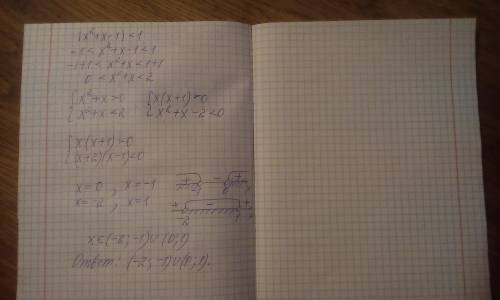 |x²+x-1|<1
-1<x²+x-1<1
-1+1<x²+x<1+1
0<x²+x<2
{x²+x>0 {x(x+1)>0
{x²+x<2 {x²+x-2<0
{x(x+1)>0
{(x+2)(x-1)<0
x=0, x=-1
x=-2, x=1
+ - +
-1 0
+ - +
-2 1
x∈(-2;-1)∪(0;1)
Ответ: (-2;-1)∪(0;1).